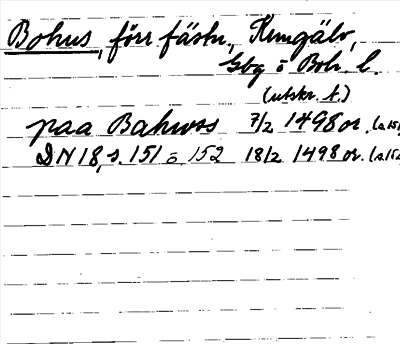 Bohus, förr fästn., Kungälv,
Gbg o Boh. l.
(utskr. f.)
paa Bahwss 7/2 1498 or. (s.151
DN 18, s. 151 o 152 18/2 1498 or. (s.152